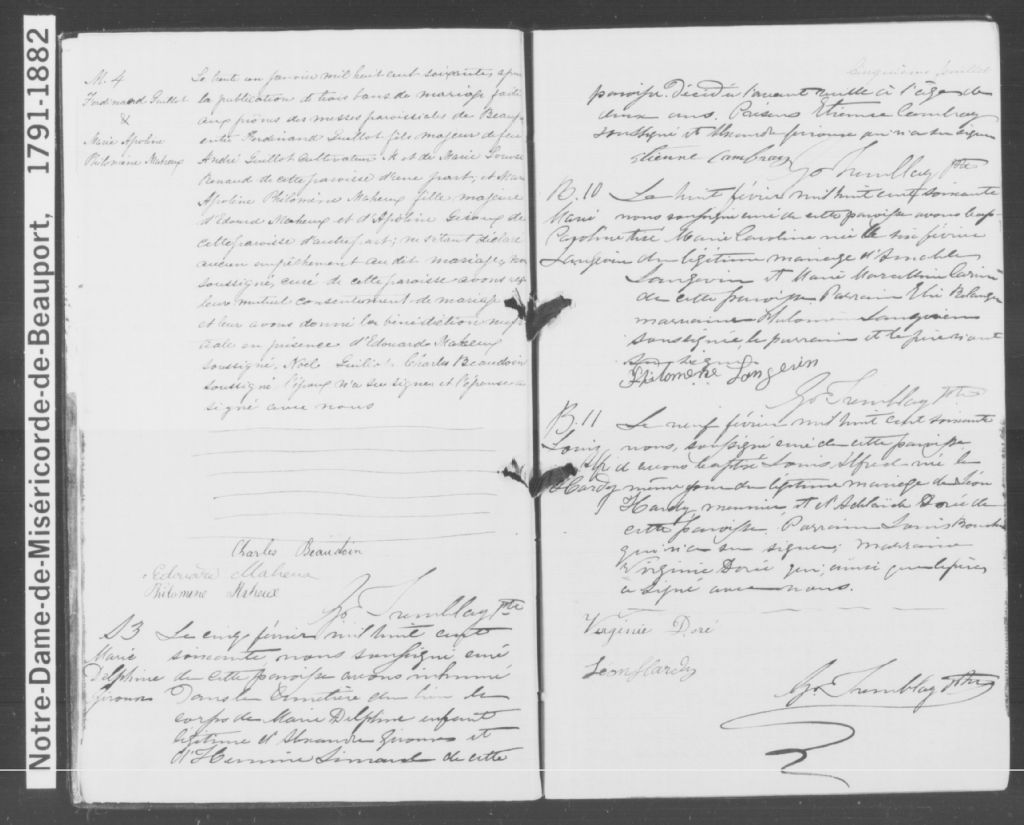 Notre-Dame-de-Miséricorde-de-Beauport, 1791-1882
M. 4
Ferdinand Guillot
&
Marie Apoline
Philomène Maheux
Le trent un janvier mil huit cent soixante, après
la publication de trois bans de mariage faite
aux prônes des messes paroissiales de Beauport
entre Ferdinand Guillot fils majeur de feu
André Guillot Cultivateur et de Marie Louise
Renaud de cette paroisse d'une part; et Marie
Apoline Philomène Maheux fille majeure
d'Edouard Maheux et d'Apoline Giroux de
cette paroisse d'autre part; ne s'étant déclaré
aucun empêchement au dit mariage, nous
soussigné, curé de cette paroisse avons reçu
leur mutuel consentement de mariage
et leur avons donné la bénédiction nup
tiale en présence d'Edouard Maheux
soussigné, Noël Guillot Charles Beaudoin
soussigné l'époux n'a su signer et l'épouse a
signé avec nous
Charles Beaudoin
Edouard Maheux
Philomène Maheux
Go. Tremblay Ptre
S 3
Marie
Delphine
Giroux
Le cinq février mil huit cent
soixante nous soussigné curé
de cette paroisse avons inhumé
dans le Cimetière du lieu le
corps de Marie Delphine enfant
légitime d'Alexandre Giroux et
d'Hermine Simard de cette
Cinquième feuillet
paroisse. Décédée l'avant veille à l'âge de
deux ans. Présens Etienne Cambray
soussigné et Alexandre Giroux qui n'a su signer
Etienne Cambray
Go. Tremblay Ptre
B. 10
Marie
Caroline
Langevin
Le huit février mil huit cent soixante
nous soussigné curé de cette paroisse avons bap-
tisé Marie Caroline née le six février
du légitime mariage d'Amable
Langevin et Marie
de cette paroisse Parrain Elie Belanger
marraine Philomène Langevin
soussignée le parrain et le père n'ont
su signer
Philomène Langevin
Go. Tremblay Ptre
B. 11
Louis
Alfred
Hardy
Le neuf février mil huit cent soixante
nous, soussigné curé de cette paroisse
avons baptisé Louis Alfred né le
même jour du légitime mariage de Léon
Hardy meunier, et d'Adélaïde Doré de
cette paroisse. Parrain Louis
qui n'a su signer; marraine
Virginie Doré qui, ainsi que le père
a signé avec nous.
Virginie Doré
Leon Hardy
Go. Tremblay Ptre